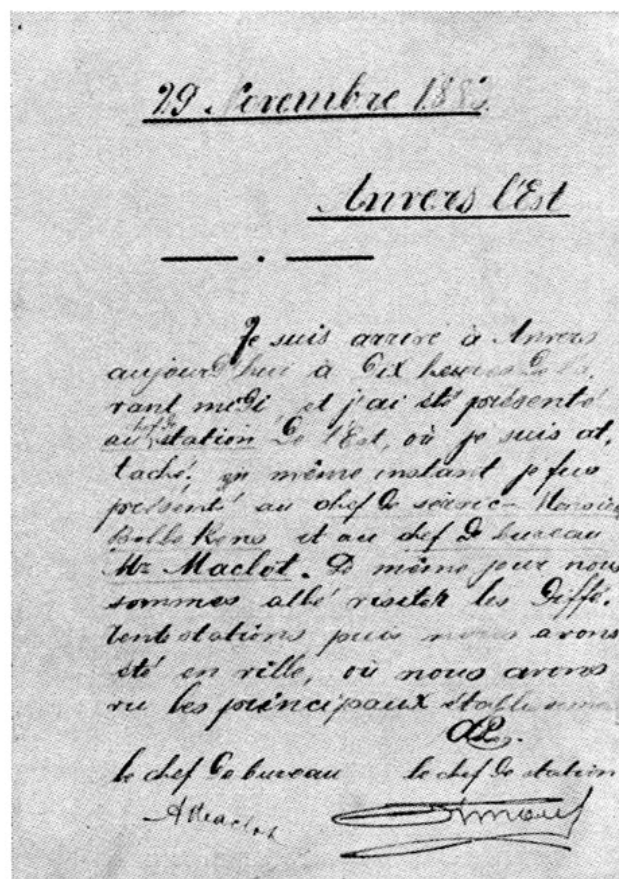 29 Novembre 188
Anvers l'Est
Je suis arrivé à Anvers
aujourd'hui à dix heures de l'a,
vant midi, et j'ai été présenté
au chef de station de l'Est, où je suis at,
taché. en même instant je fus
présenté au chef de service Monsieur
et au chef de bureau
Mr Maclot. Le même jour nous
sommes allé visiter les diffé,
rente stations puis nous avons
été en ville, où nous avons
vu les principaux
le chef de bureau le chef de station
AMaclot